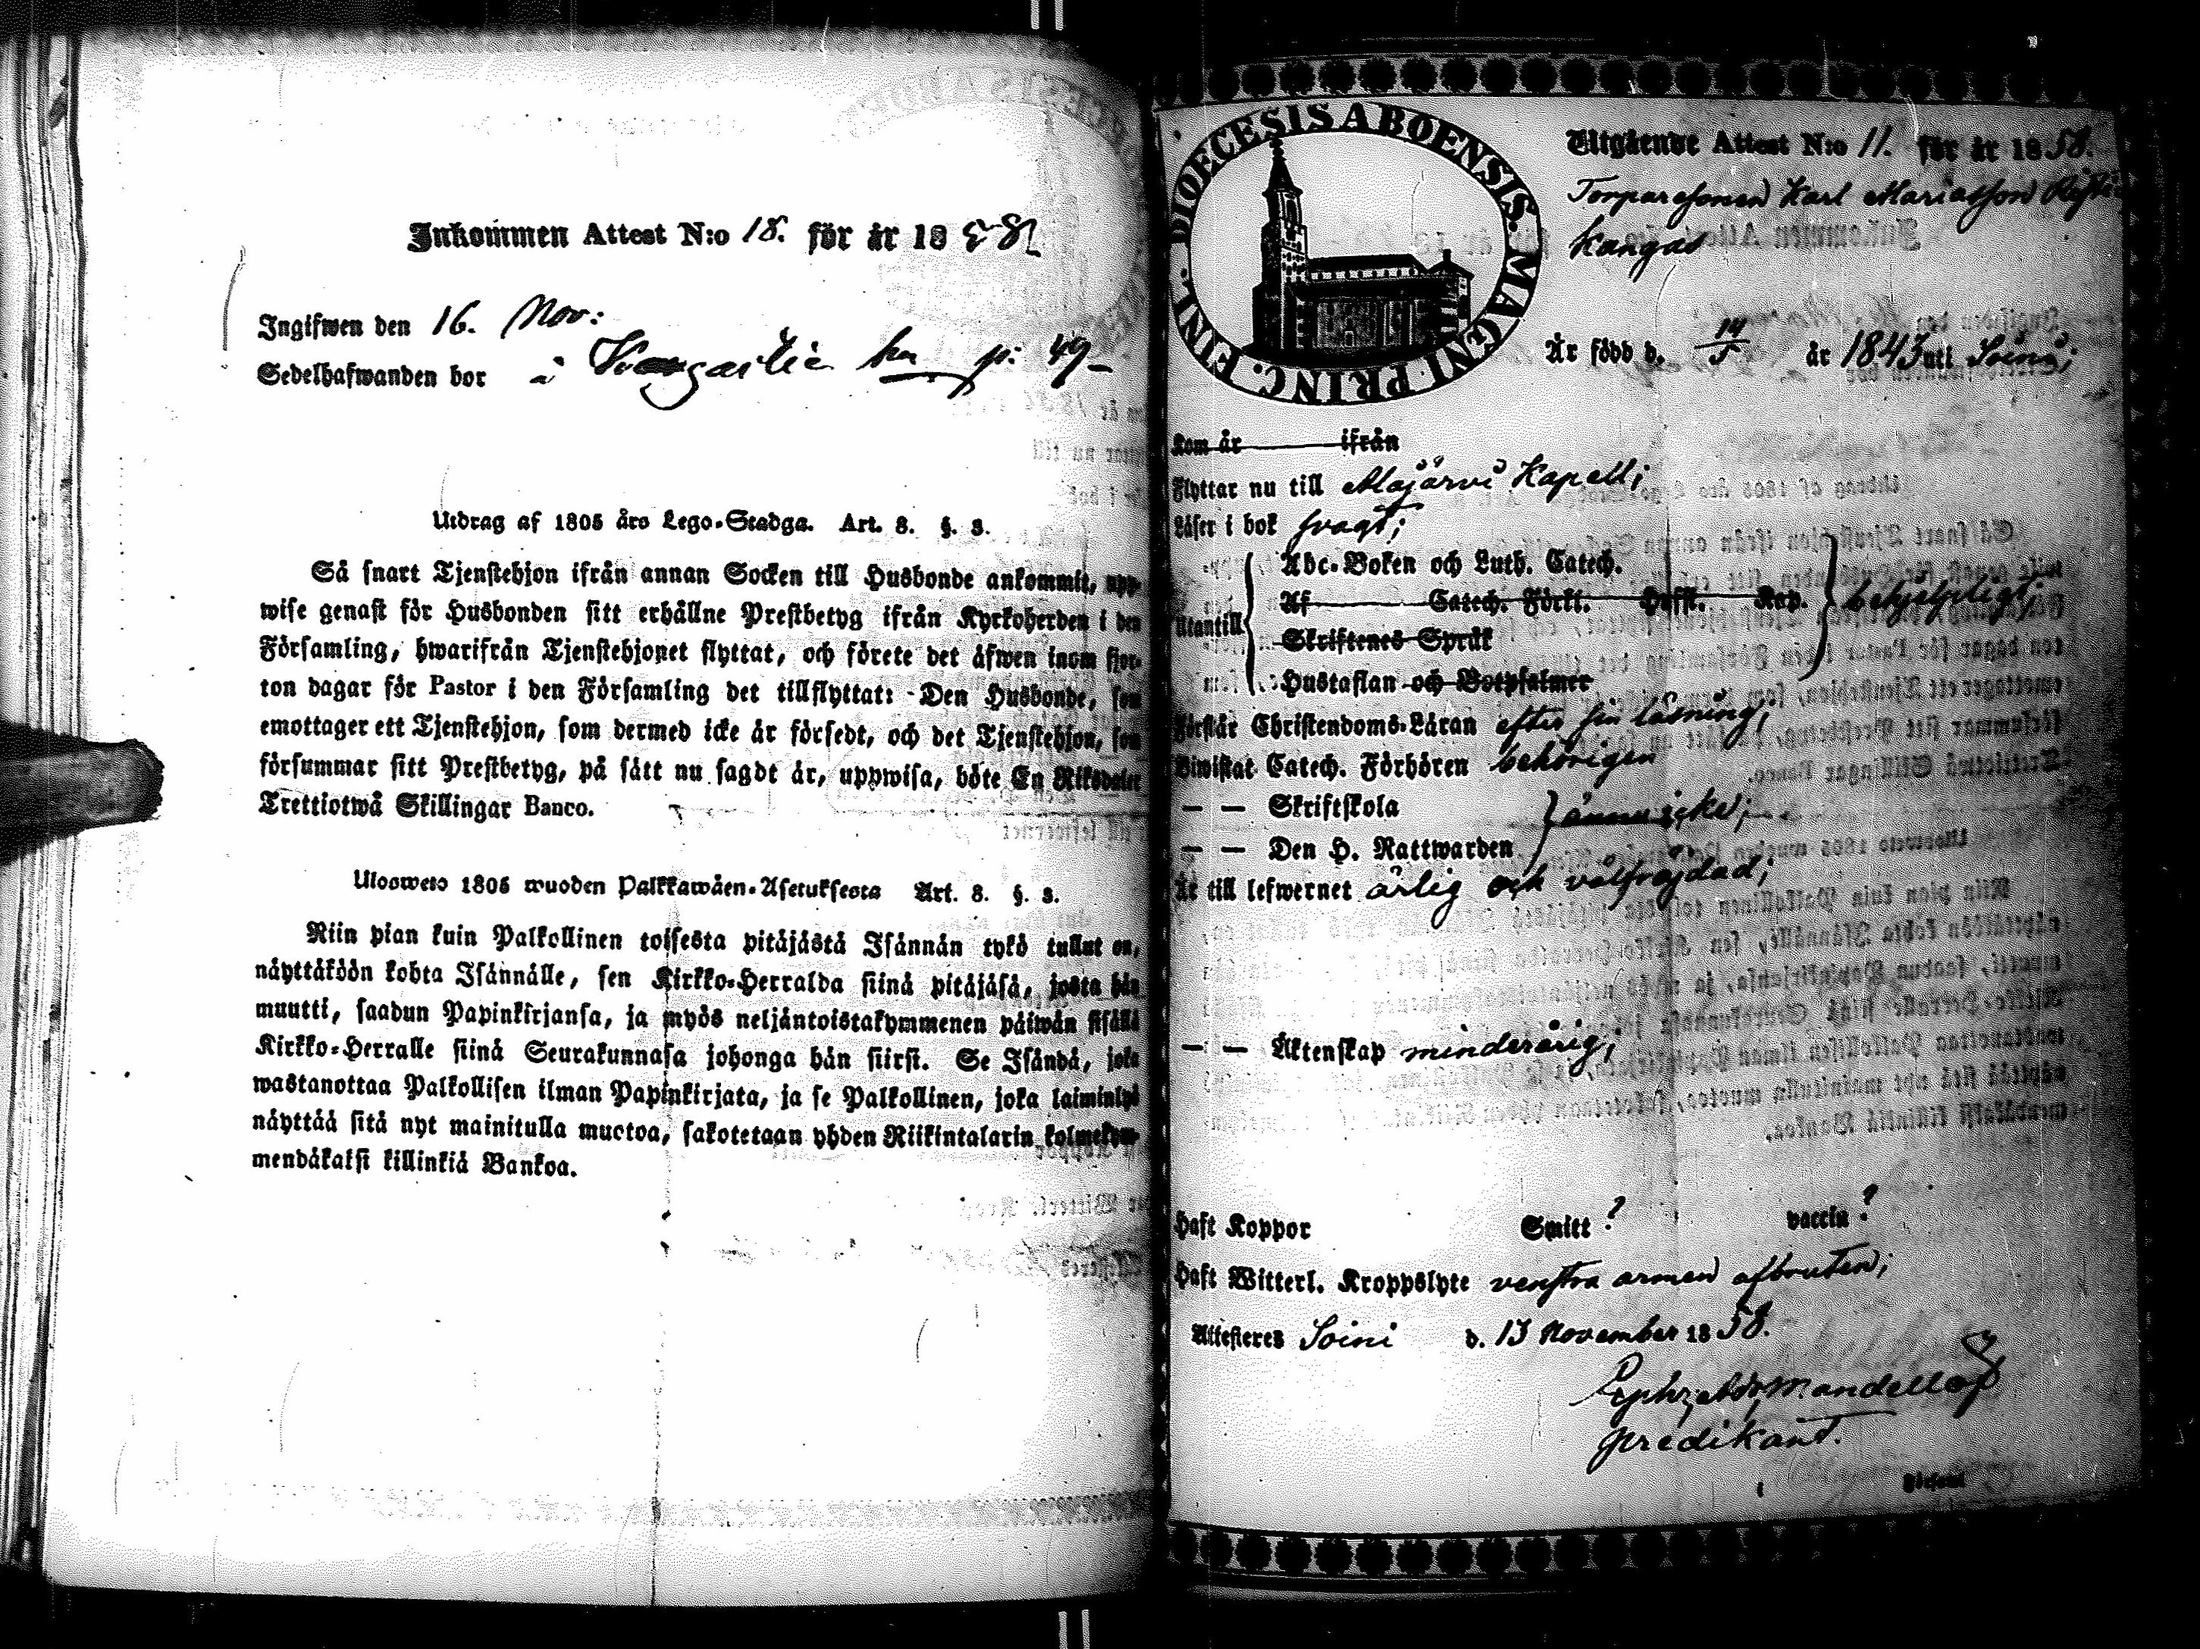 Inkommen Attest N:o 18. för år 1858
Ingifwen den 16. Nov:
Sedelhafwanden bor å p: 49
Utdrag af 1805 års Lego-Stadga. Art. 8. §. 3.
Så snart Tjenstehjon ifrån annan Socken till Husbonde ankommit, upp-
wise genast för Husbonden sitt erhållne Prestbetyg ifrån Kyrkoherden i den
Församling, hwarifrån Tjenstehjonet flyttat, och förete det äfwen inom fjor-
ton dagar för Pastor i den Församling det tillflyttat: Den Husbonde, som
emottager ett Tjenstehjon, som dermed icke är försedt, och det Tjenstehjon, som
försummar sitt Prestbetyg, på sätt nu sagdt är, uppwisa, böte En Riksdaler
Trettiotwå Skillingar Banco.
Ulosweto 1805 wuoden Palkkawäen-Asetuksesta Art. 8. §. 3.
Niin pian kuin Palkollinen toisesta pitäjästä Isännän tykö tullut on,
näyttäköön kohta Isännälle, sen Kirkko-Herralda siinä pitäjäsä, josta hän
muutti, saadun Papinkirjansa, ja myös neljäntoistakymmenen päiwän sisällä
Kirkko-Herralle siinä Seurakunnasa johonga hän siirsi. Se Isändä, joka
wastanottaa Palkollisen ilman Papinkirjata, ja se Palkollinen, joka laiminlyö
näyttää sitä nyt mainitulla muotoa, sakotetaan yhden Riikintalarin kolmekym-
mendäkaksi killinkiä Bankoa.
DIOECESIS ABOENSIS. MAGNI PRINC. FINL.
Utgående Attest N:o 11. för år 1858.
Torparesonen Karl Mariasson
kangas
Är född d. 14/5 år 1843 uti Soini;
Kom år ifrån
Flyttar nu till Alajärvi Kapell;
Läser i bok svagt;
Utantill
Abc-Boken och Luth. Catech.
Af Catech. Förkl. Hufst. Kap.
Skriftenes Språk
Hustaflan och Botpsalmer
Förstår Christendoms-Läran efter sin läsning;
Biwistat Catech. Förhören behörigen
— — Skriftskola
ännu icke;
— — Den H. Nattwarden
Är till lefwernet ärlig och välfrejdad;
— — Äktenskap minderårig;
Haft Koppor Smitt? vaccin?
Haft Witterl. Kroppslyte venstra armen afbruten;
Attesteres Soini d. 13 November 1858.
predikant.